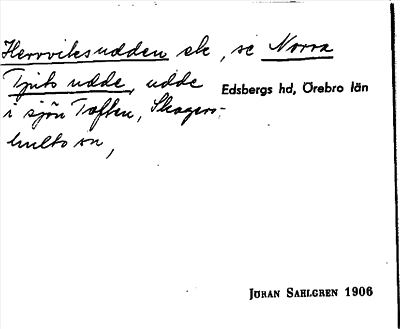 Herrviksudden ek, se Norra
Tjuts udde, udde
i sjön Toften, Skagers-
hults sn,
Edsbergs hd, Örebro län
JÖRAN SAHLGREN 1906